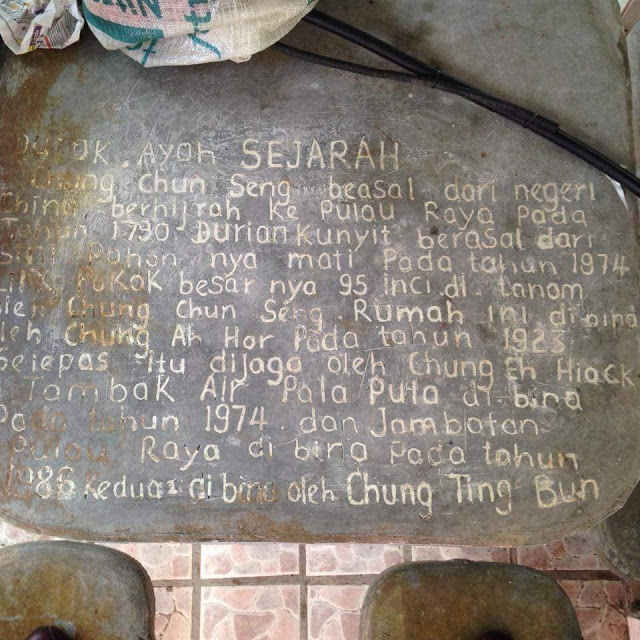 Ayah SEJARAH
Chung Chun Seng beasal dari negeri
berhijrah ke Pulau Raya Pada
1790 Durian kunyit berasal dari
pohon nya mati Pada tahun 1974
Pokok besar nya 95 inci di tanam
oleh Chung Chun Seng. Rumah ini di bina
oleh Chung Ah Hor Pada tahun 1923
selepas itu dijaga oleh Chung Eh Hiack
Tambak Air Pala Puta di bina
Pada tahun 1974. dan Jambatan
Pulau Raya di bina Pada tahun
1986 Kedua2 di bina oleh Chung Ting Bun